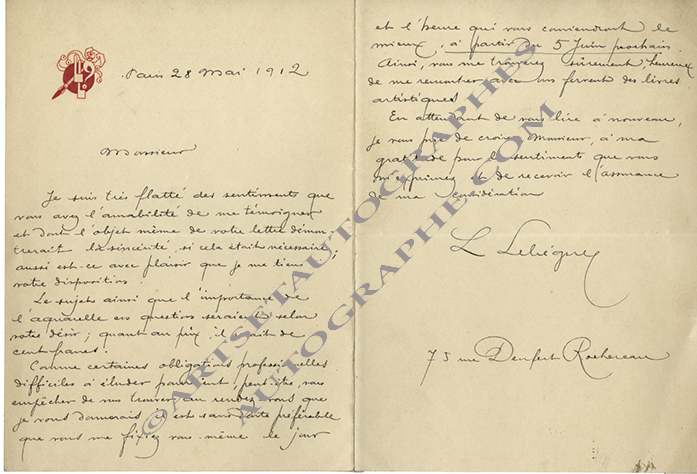 Paris 28 Mai 1912
Monsieur
Je suis très flatté des sentiments que
vous avez l'amabilité de me témoigner
et dont l'objet même de votre lettre démon-
trerait la sincérité, si cela était nécessaire,
aussi est-ce avec plaisir que je me tiens à
votre disposition.
Le sujet ainsi que l'importance de
l'aquarelle en question seraient selon
votre désir; quant au prix il serait de
cent francs.
Comme certaines obligations professionnelles
difficiles à éluder pourraient, peut-être, vous
empêcher de me trouver au rendez-vous que
je vous donnerais il est sans doute préférable
que vous me fixiez vous même le jour
et l'heure qui vous conviendront le
mieux, à partir du 5 Juin prochain.
Ainsi, vous me trouverez sûrement, heureux
de me rencontrer avec un fervent des livres
artistiques.
En attendant de vous lire à nouveau,
je vous prie de croire, Monsieur, à ma
gratitude pour les sentiments que vous
m'exprimez et de recevoir l'assurance
de ma considération
L Lebègue
75 rue Denfert Rochereau
©ARTSETAUTOGRAPHES
AUTOGRAPHE.COM